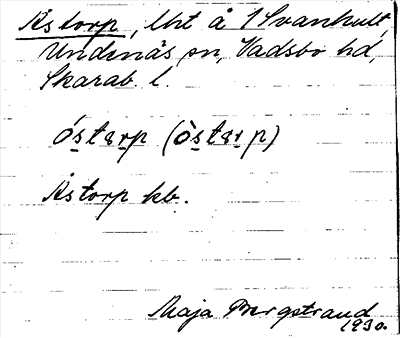 Åstorp, lht å 1 Svanhult,
Undenäs sn, Vadsbo hd,
Skarab. l.
óstarp (òstarp)
Åstorp kb.
Maja Bergstrand
1930.